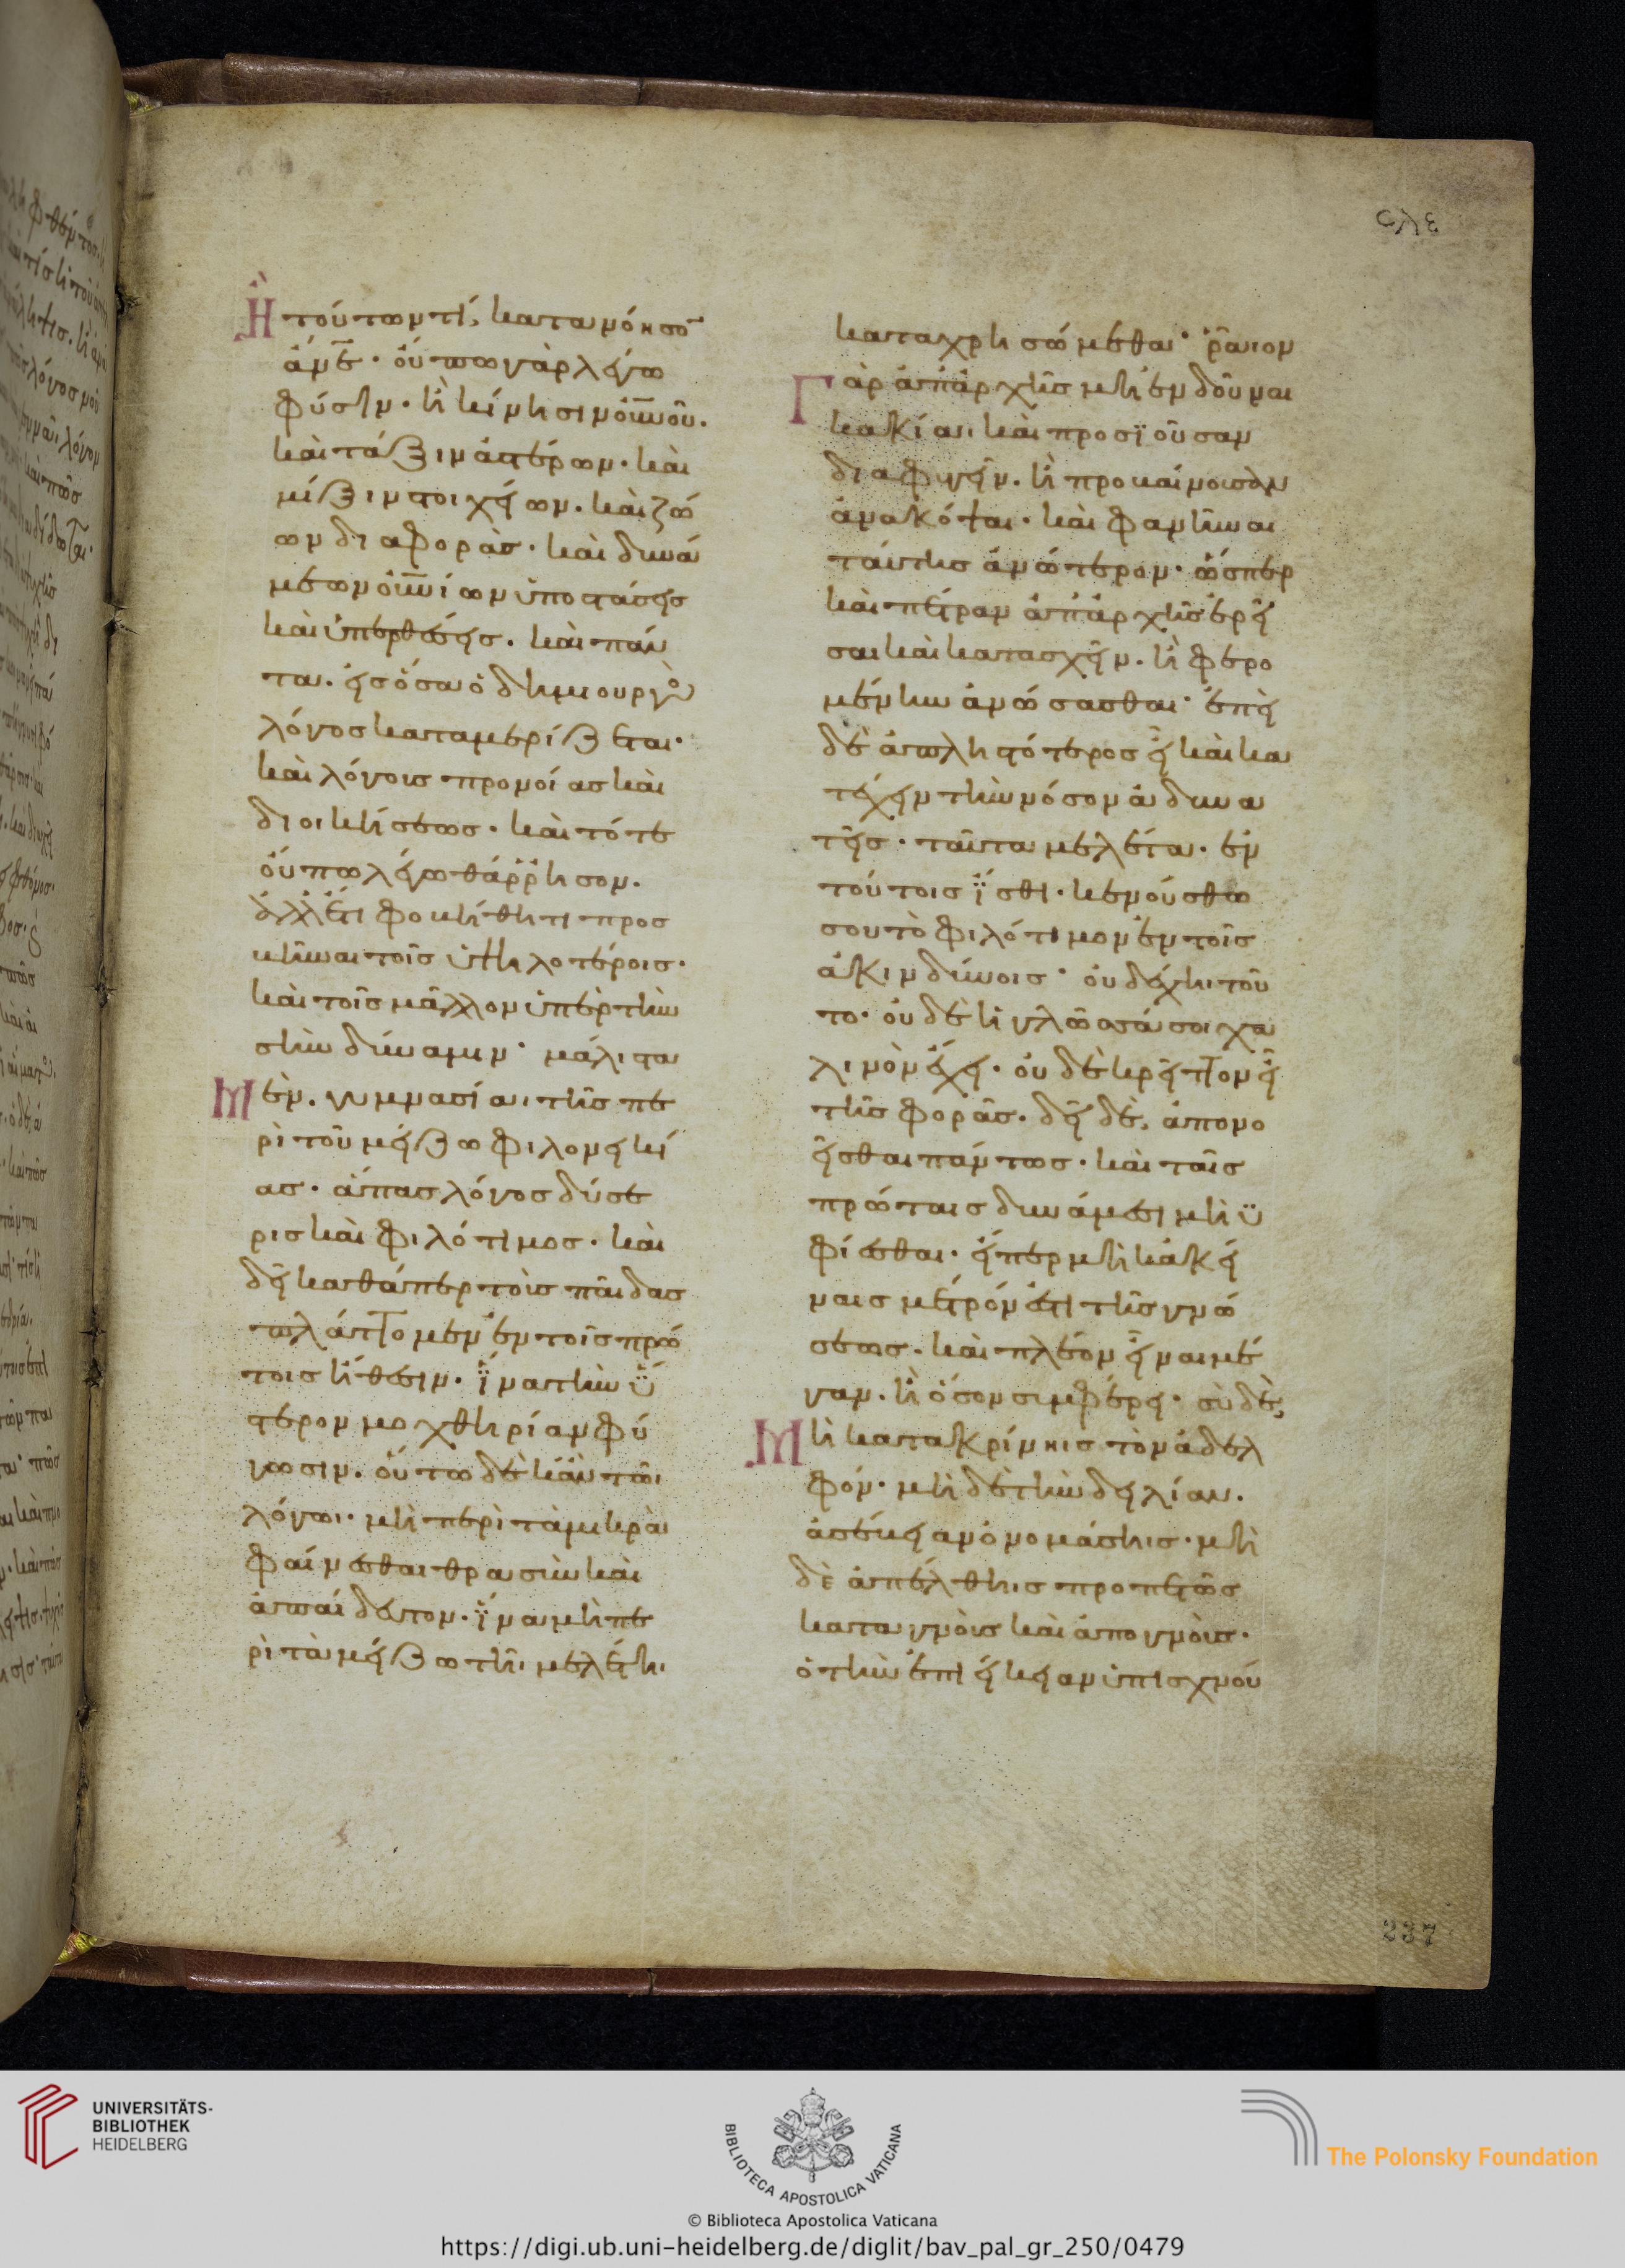 Ἢ τούτων τί, κατανόησο̅
ἄν̅ε· οὔπω γὰρ λέγω
φύσιν· ἢ κίνησιν οὐ̅νοῦ.
καὶ τάξιν ἀστέρων· καὶ
μίξιν στοιχείων. καὶ ζώ
ων διαφορὰς· καὶ δυνά
μεων οὐ̅νίων ὑποστάσεις
καὶ ὑπερθέσεις. καὶ πάν
τα. εἰς ὅσα ὁ δημιουργὸς
λόγος καταμερίζεται·
καὶ λόγους προνοίας καὶ
διοικήσεως· καὶ τότε
οὔπω λέγω θάρρησον.
ἀλλ' ἔτι φοβήθητι προσ
βῆναι τοῖς ὑψηλοτέροις·
καὶ τοῖς μᾶλλον ὑπὲρ τὴν
σὴν δύναμιν· μάλιστα
Μὲν. γυμνασία, τῆς πε
ρὶ τοῦ μείζω φιλονεικί
ας· ἅπας λόγος δύσε
ρις καὶ φιλότιμος· καὶ
δεῖ καθάπερ τοὺς παῖδας
πλάττομεν ἐν τοῖς πρώ
τοις ἤθεσιν. ἵ̈να τὴν ὕ̈
στερον μοχθηρίαν φύ
γωσιν. οὕτω δὲ κἀν τῶι
λόγωι. μὴ περὶ τὰ μικρὰ
φαίνεσθαι θρασὺν καὶ
ἀπαίδευτον. ἵ̈να μὴ πε
ρὶ τὰ μείζω τῆι μελέτηι
σλε
καταχρησώμεθα· ῥᾶιον
Γὰρ ἀπ' ἀρχῆς μὴ ἐνδοῦναι
κακίαι. καὶ προσϊοῦσαν
διαφυγεῖν. ἢ προβαίνουσαν
ἀνακόψαι. καὶ φανῆναι
ταύτης ἀνώτερον· ὥσπερ
καὶ πέτραν ἀπ' ἀρχῆς ἐρεῖ
σαι καὶ κατασχεῖν. ἢ φερο
μένην ἀνώσασθαι· ἐπεὶ
δὲ ἀπληστότερος εἶ καὶ κα
τέχειν τὴν νόσον ἀδυνα
τεῖς. ταῦτα μελέτα. ἐν
τούτοις ἴ̈σθι. κενούσθω
σου τὸ φιλότιμον ἐν τοῖς
ἀκινδύνοις· οὐ δέχηι τοῦ
το. οὐδὲ ἡ γλῶσσά σοι χα
λινὸν ἔχει. οὐδὲ κρεῖττον εἶ
τῆς φορᾶς. δεῖ δὲ, ἀπονο
εῖσθαι πάντως. καὶ ταῖς
πρώταις δυνάμεσι μὴ ὑ̈
φίεσθαι. εἴπερ μὴ κἀκεί
ναις μέτρόν ἐστι τῆς γνώ
σεως. καὶ πλέον εἶναι μέ
γαν. ἢ ὅσον συμφέρει· σὺ δὲ,
Μὴ κατακρίνηις τὸν ἀδελ
φόν· μὴ δὲ τὴν δειλίαν.
ἀσέβειαν ὀνομάσηις. μὴ
δὲ ἀπέλθηις προπετῶς
καταγνοὺς καὶ ἀπογνοὺς·
ὁ τὴν ἐπιείκειαν ὑπισχνού
237
UNIVERSITÄTS-
BIBLIOTHEK
HEIDELBERG
BIBLIOTECA APOSTOLICA VATICANA
The Polonsky Foundation
© Biblioteca Apostolica Vaticana
https://digi.ub.uni-heidelberg.de/diglit/bav_pal_gr_250/0479